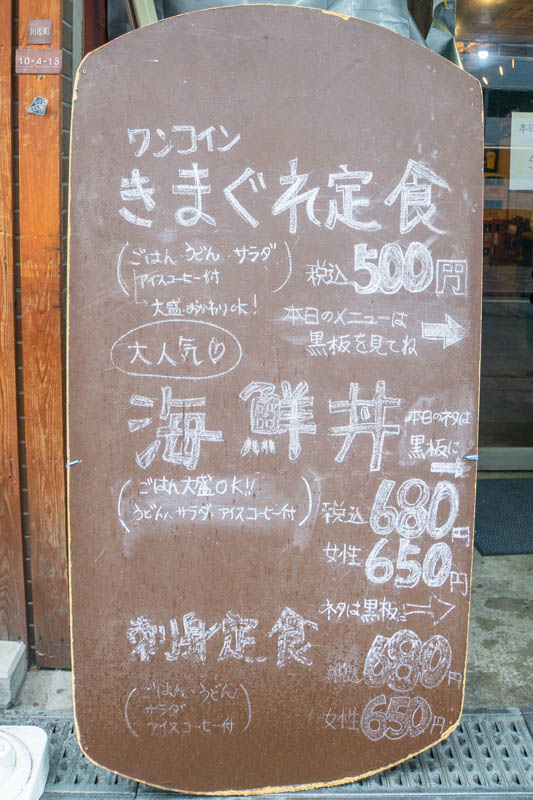 川原町
10-4-13
ワンコイン
きまぐれ定食
(ごはん うどん サラダ
アイスコーヒー付)
→大盛.おかわりOK!
税込500円
本日のメニューは
黒板を見てね→
大人気♡
海鮮丼
本日のネタは
黒板に→
(ごはん大盛OK!!
うどん、サラダ、アイスコーヒー付)
税込680円
女性650円
刺身定食
ネタは黒板に→
(ごはん、うどん
サラダ
アイスコーヒー付)
税込680円
女性650円
本日